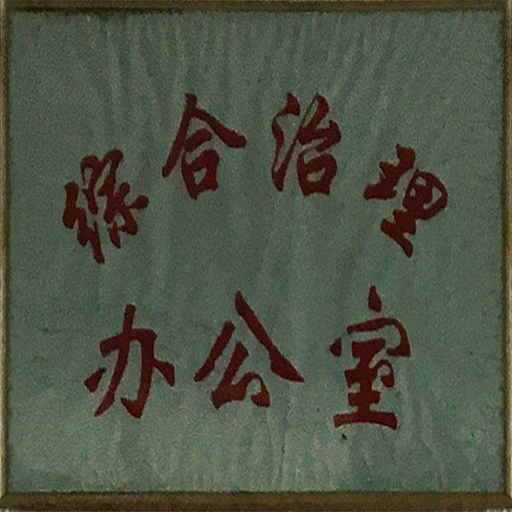 综合治理
办公室